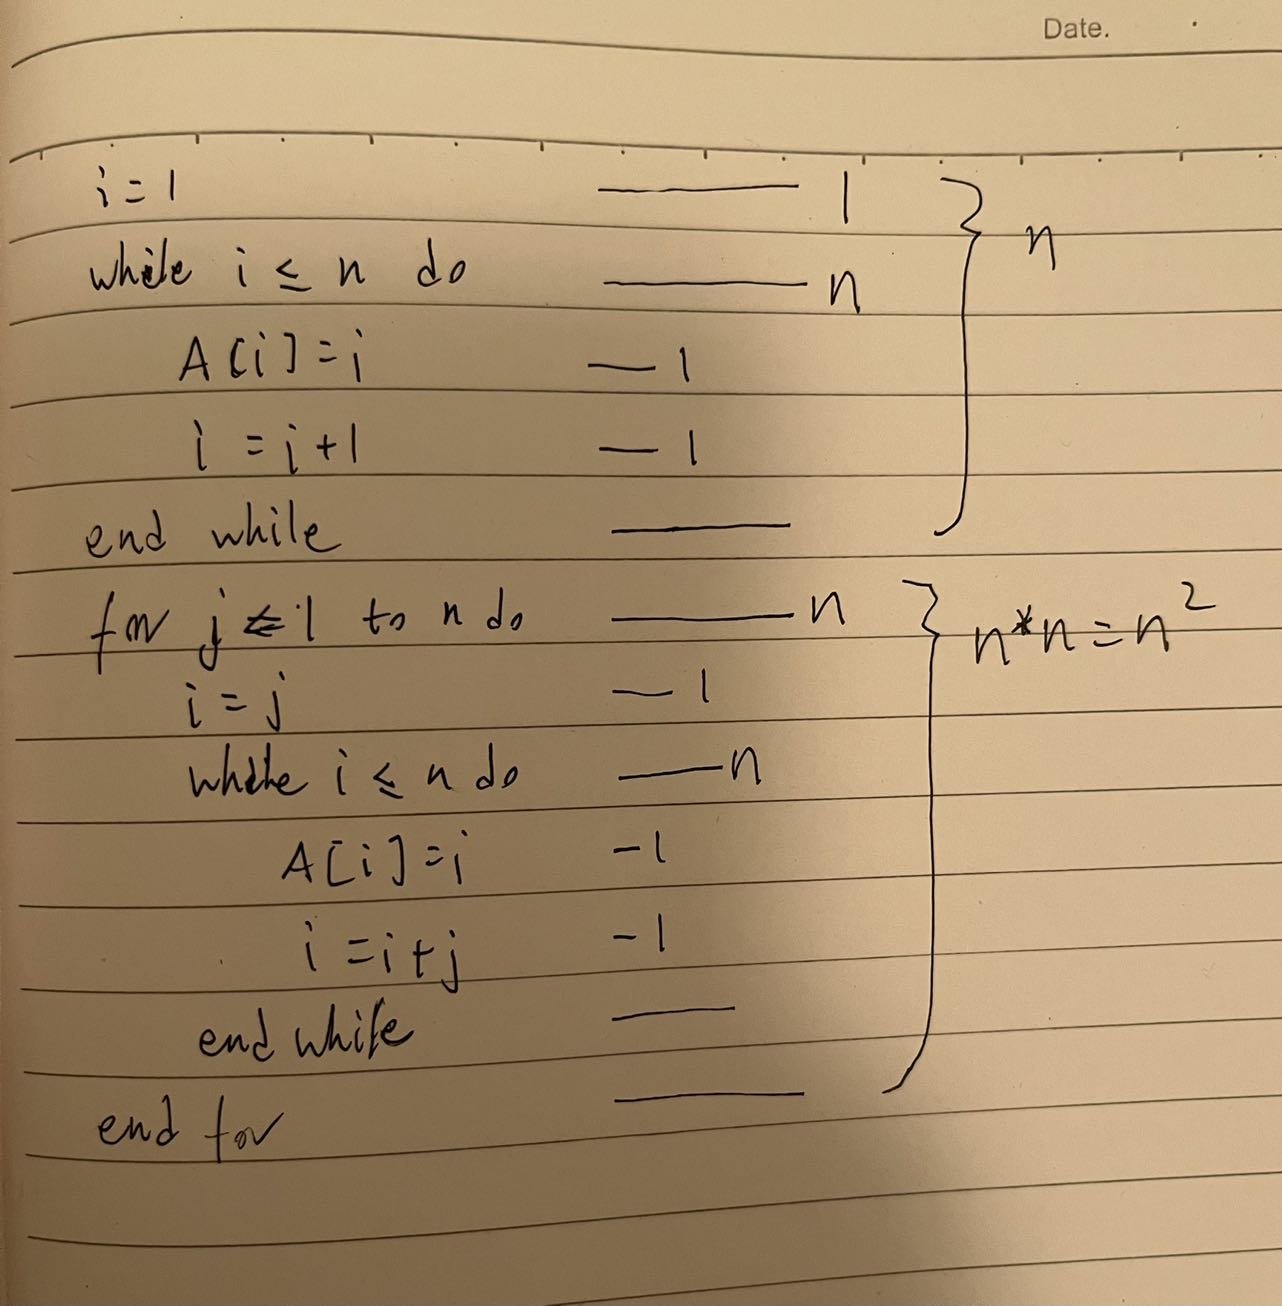 Date.
i = 1 —— 1 } n
while i ≤ n do —— n
A[i] = i — 1
i = i + 1 — 1
end while ——
for j ⇐ 1 to n do —— n } n*n = n²
i = j — 1
while i ≤ n do —— n
A[i] = i - 1
i = i + j - 1
end while ——
end for ——